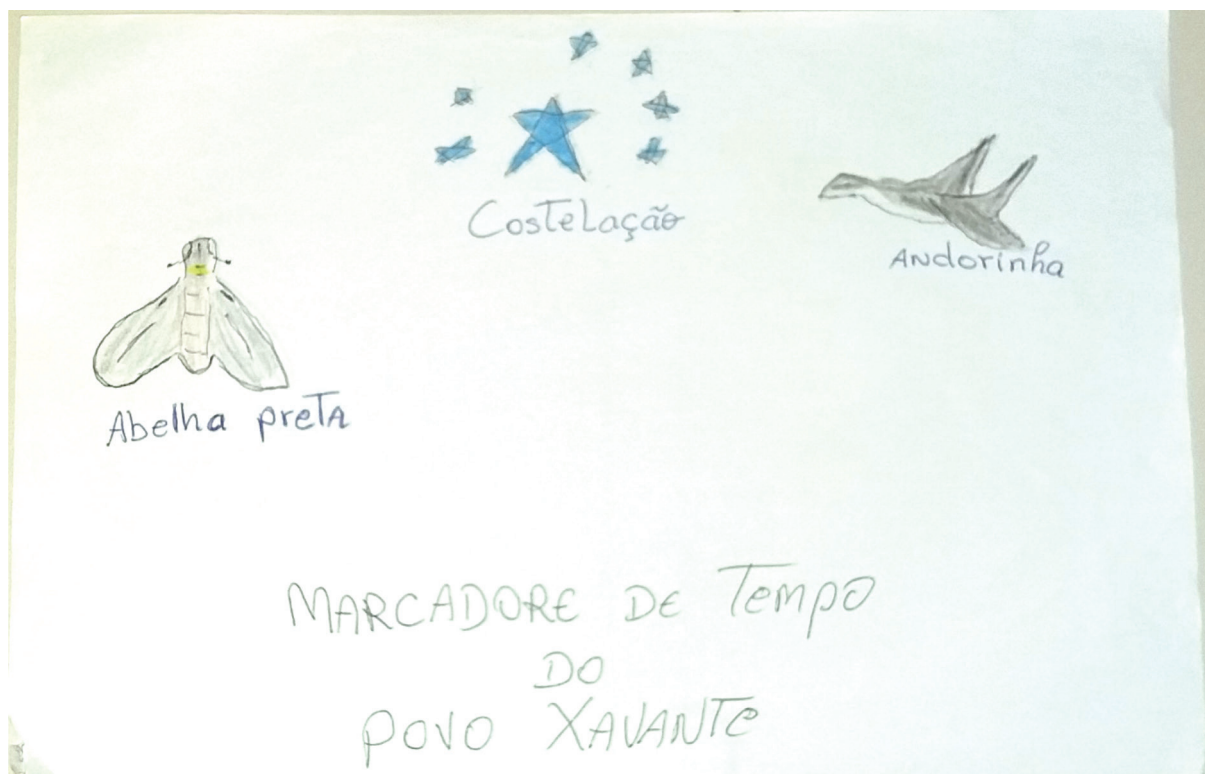 CosTeLação
ANdorinha
Abelha preTA
MARCADORE DE Tempo
DO
POVO XAVANTE